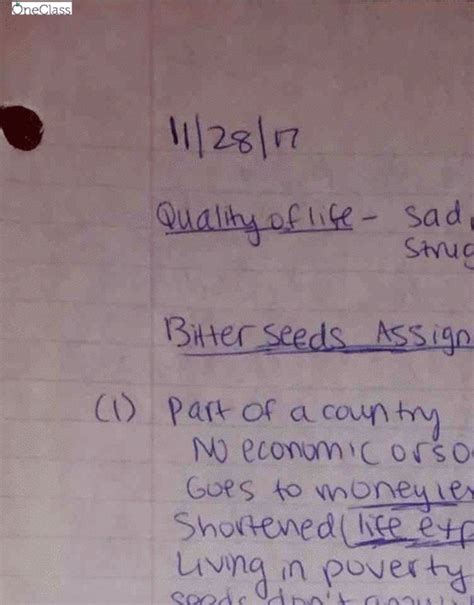 OneClass
11/28/17
Quality of life - Sad,
Strug
Bitter Seeds Assign
(1) Part of a country
No economic or so
Goes to money le
Shortened (life exp
Living in poverty
seeds don't